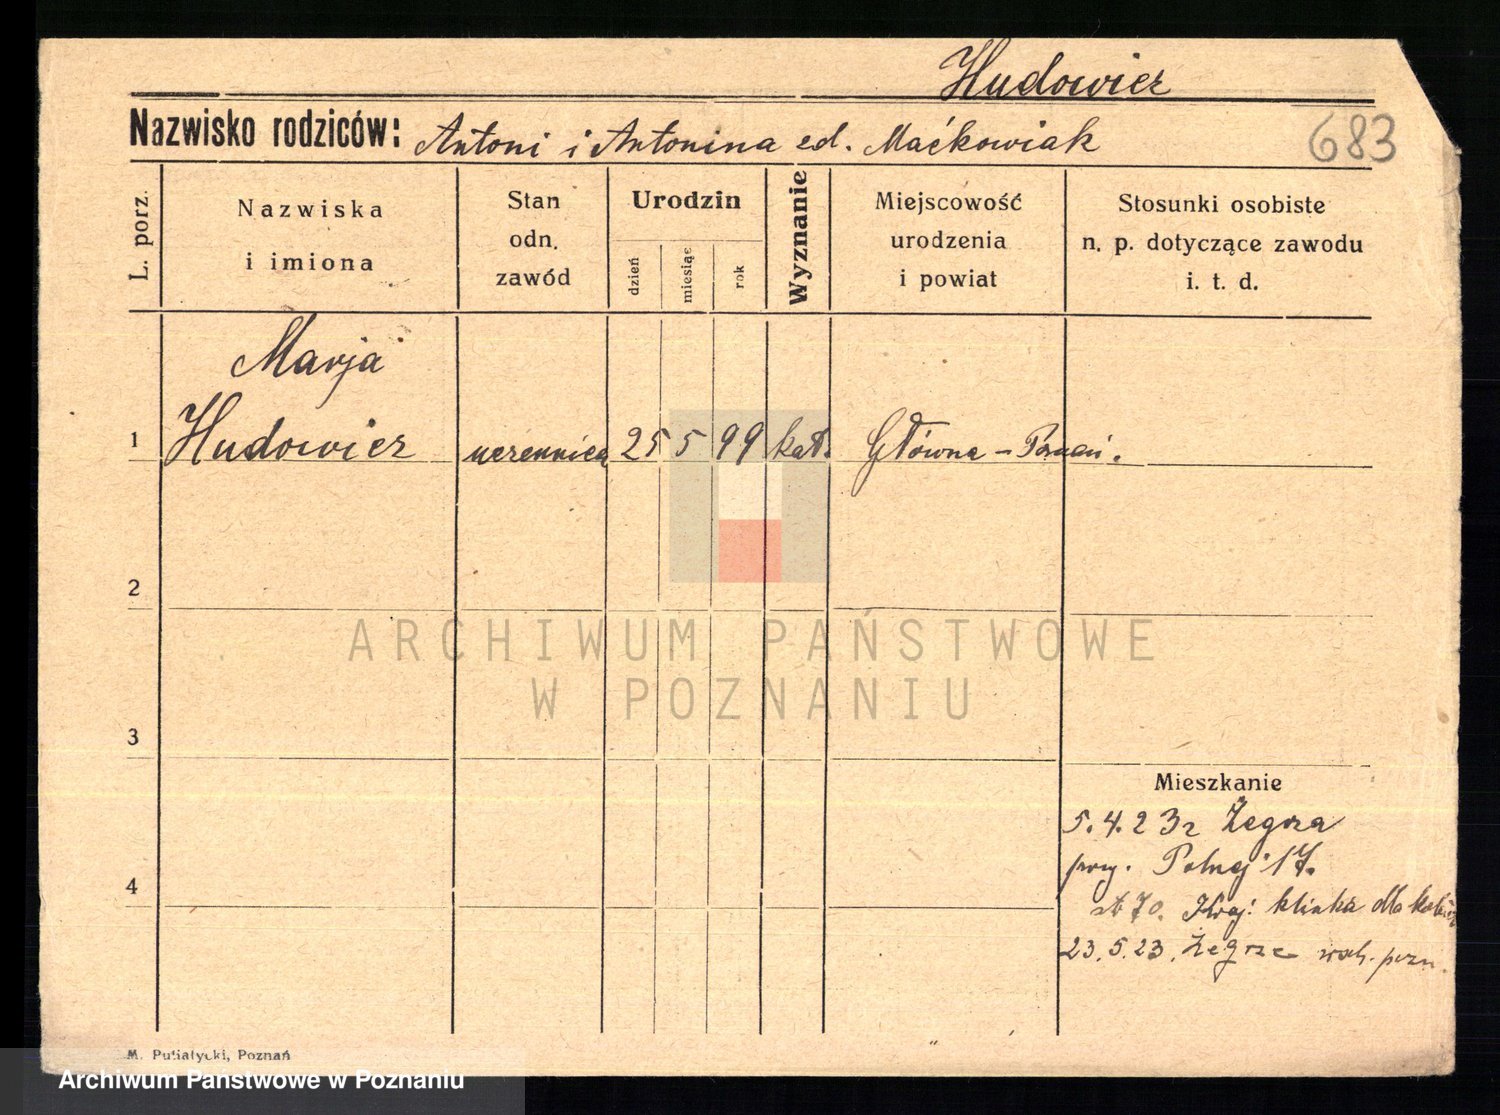 Hudowicz
Nazwisko rodziców: Antoni i Antonina zd. Maćkowiak
683
L. porz.
Nazwiska
i imiona
Stan
odn.
zawód
Urodzin
dzień
miesiąc
rok
Wyznanie
Miejscowość
urodzenia
i powiat
Stosunki osobiste
n. p. dotyczące zawodu
i. t. d.
Marja
1 Hudowicz uczennica 25 5 99 kat. Główna - Poznań.
2
ARCHIWUM PAŃSTWOWE
W POZNANIU
3
Mieszkanie
5.4.23 z Żegrza
przy. Polnej 17.
4
70. Kraj. klinika dla kobiet
23.5.23. Żegrze pozn.
M. Putiatycki, Poznań
Archiwum Państwowe w Poznaniu